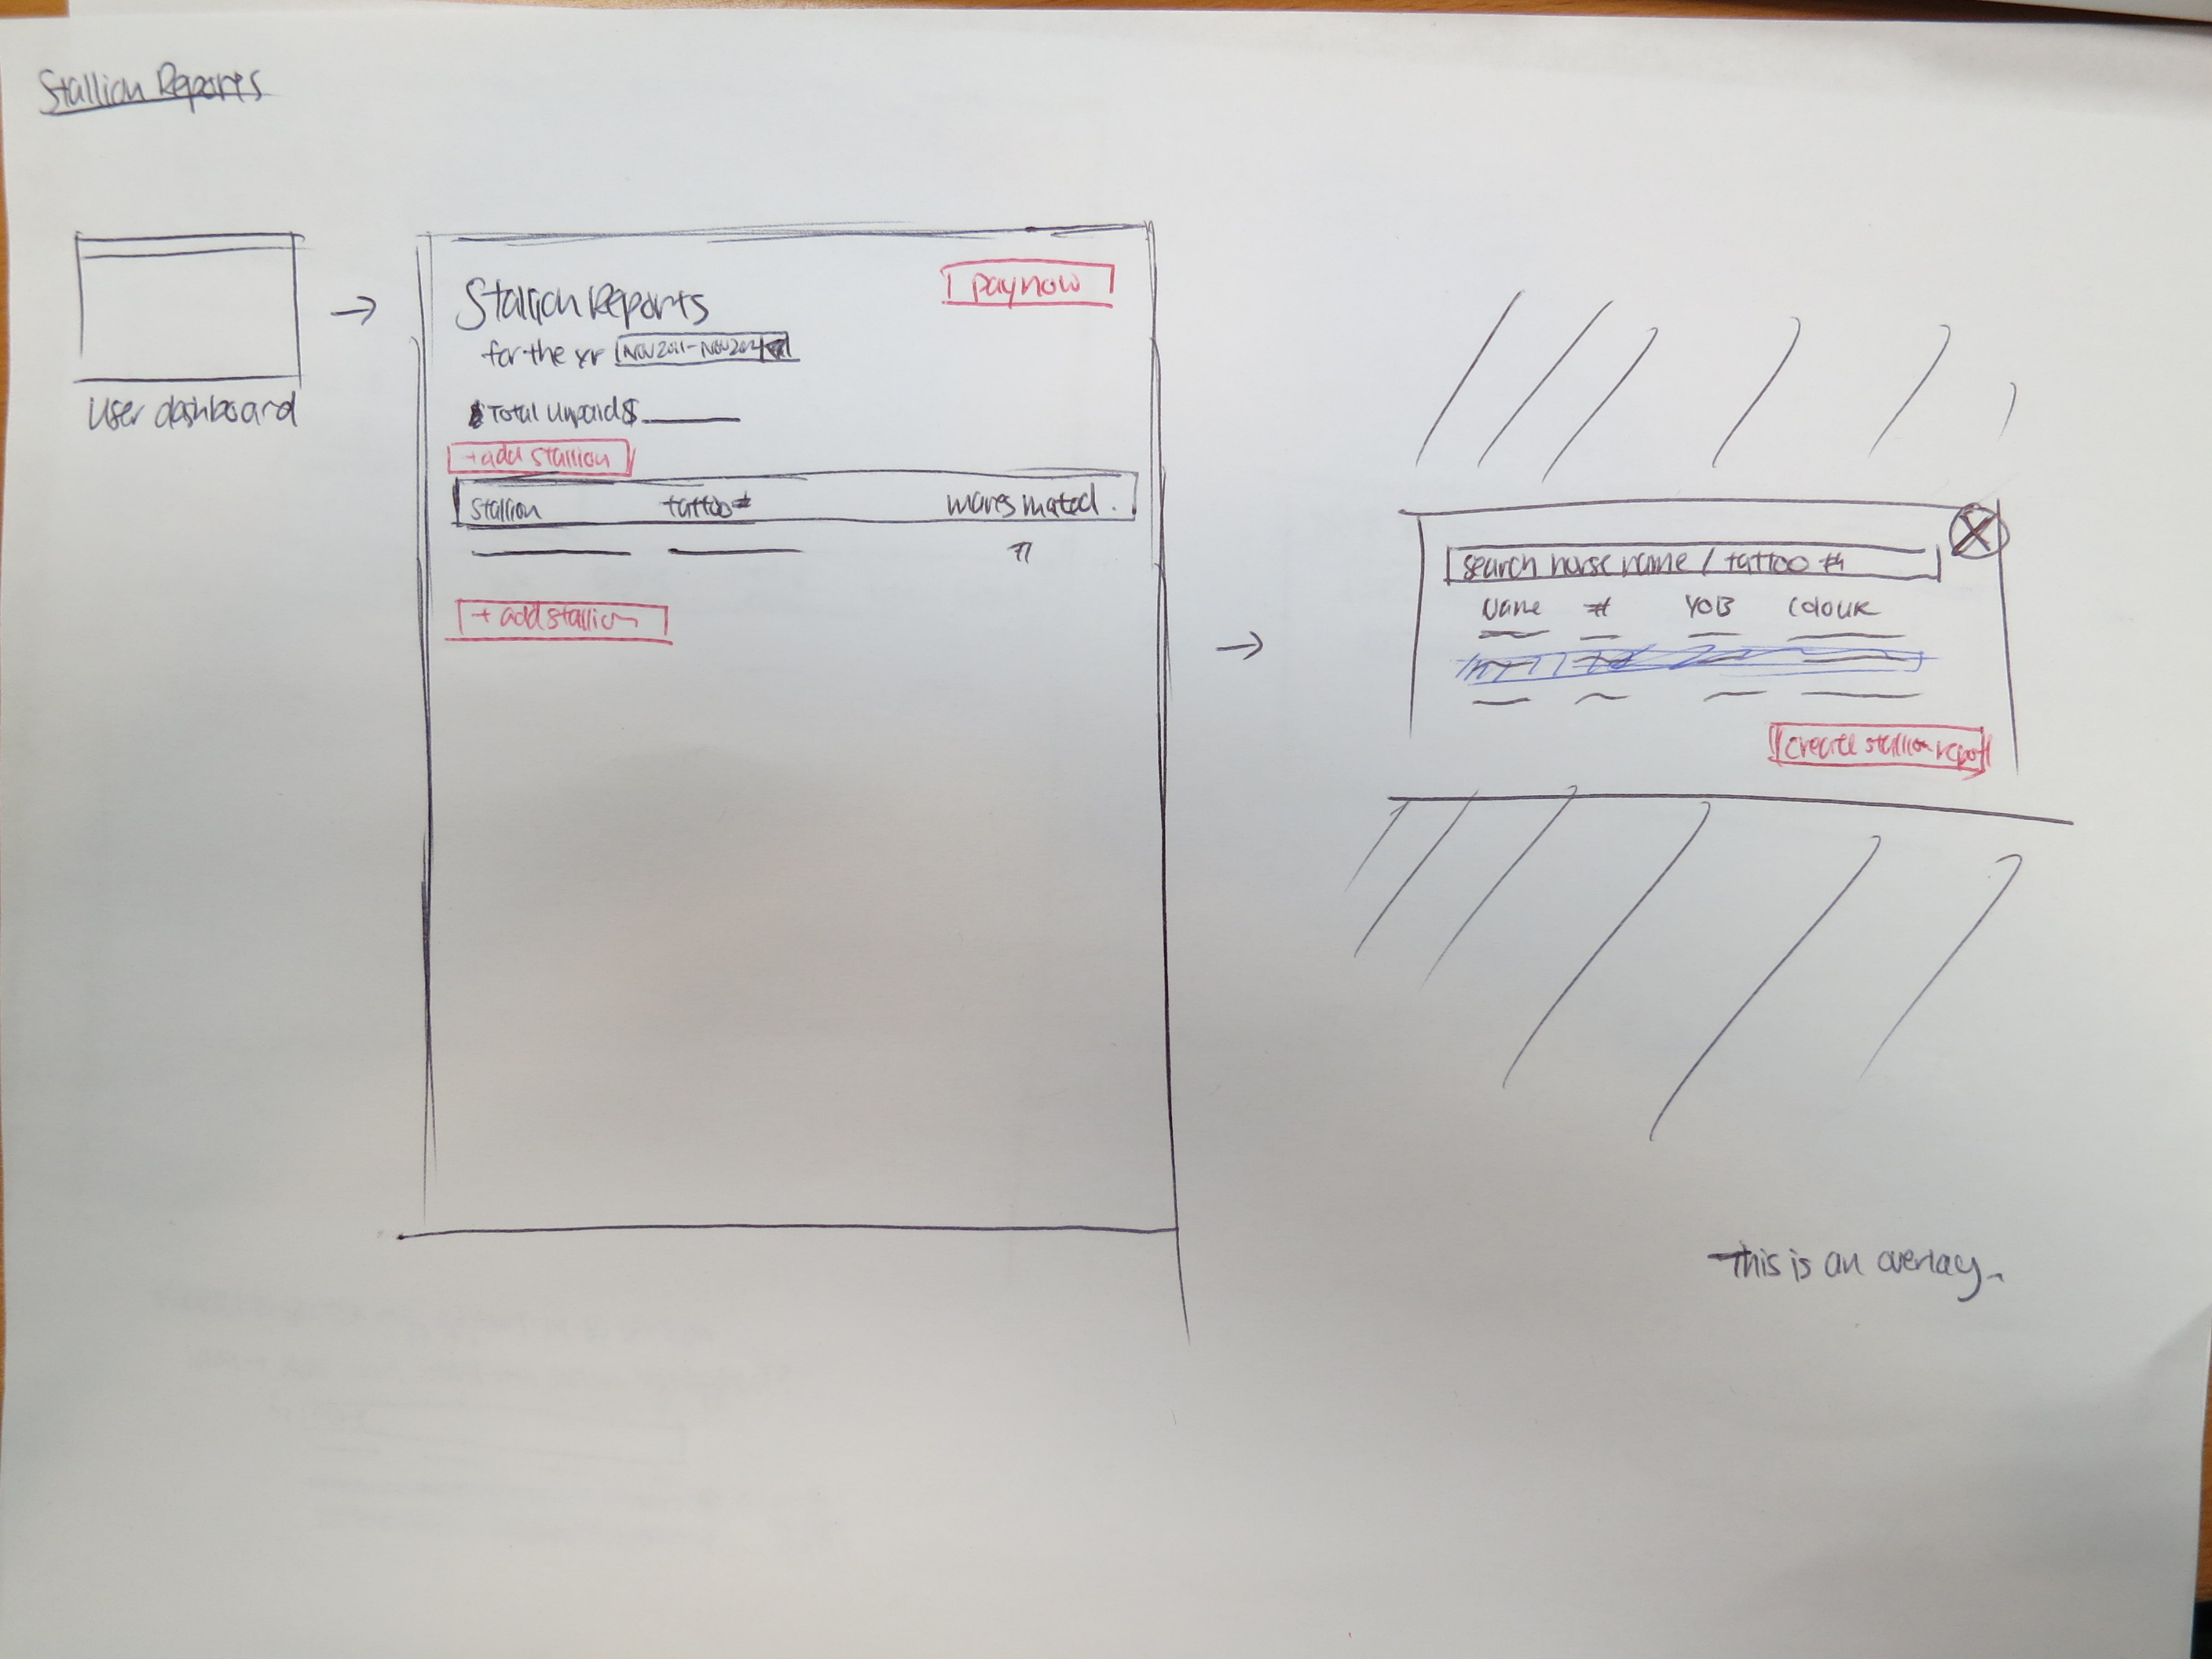 Stallion Reports
User dashboard
Stallion Reports
pay now
for the yr
Total Unpaid $
+ add stallion
Stallion tattoo # mares mated.
+ add stallion
search horse name / tattoo #
Name # YOB Colour
create stallion report
This is an overlay.